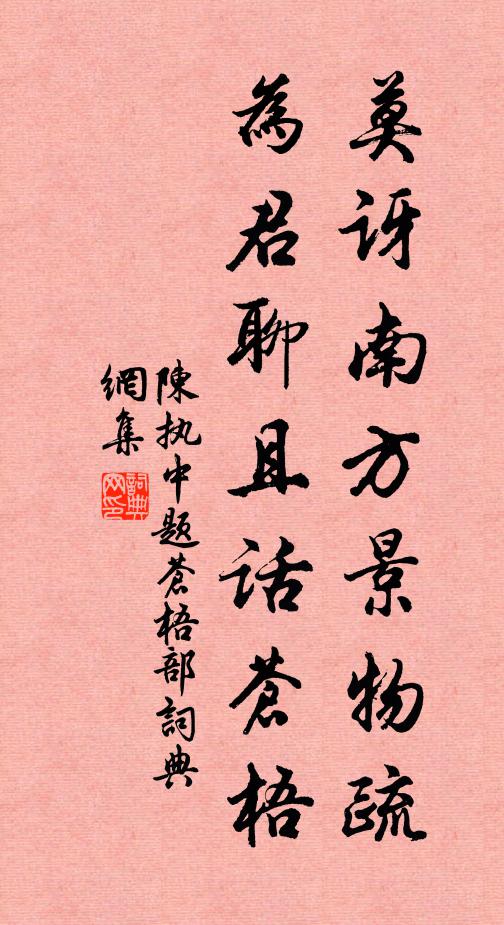 莫訝南方景物疏
為君聊且話蒼梧
陳执中題蒼梧部詞典
網集
詞典
网印